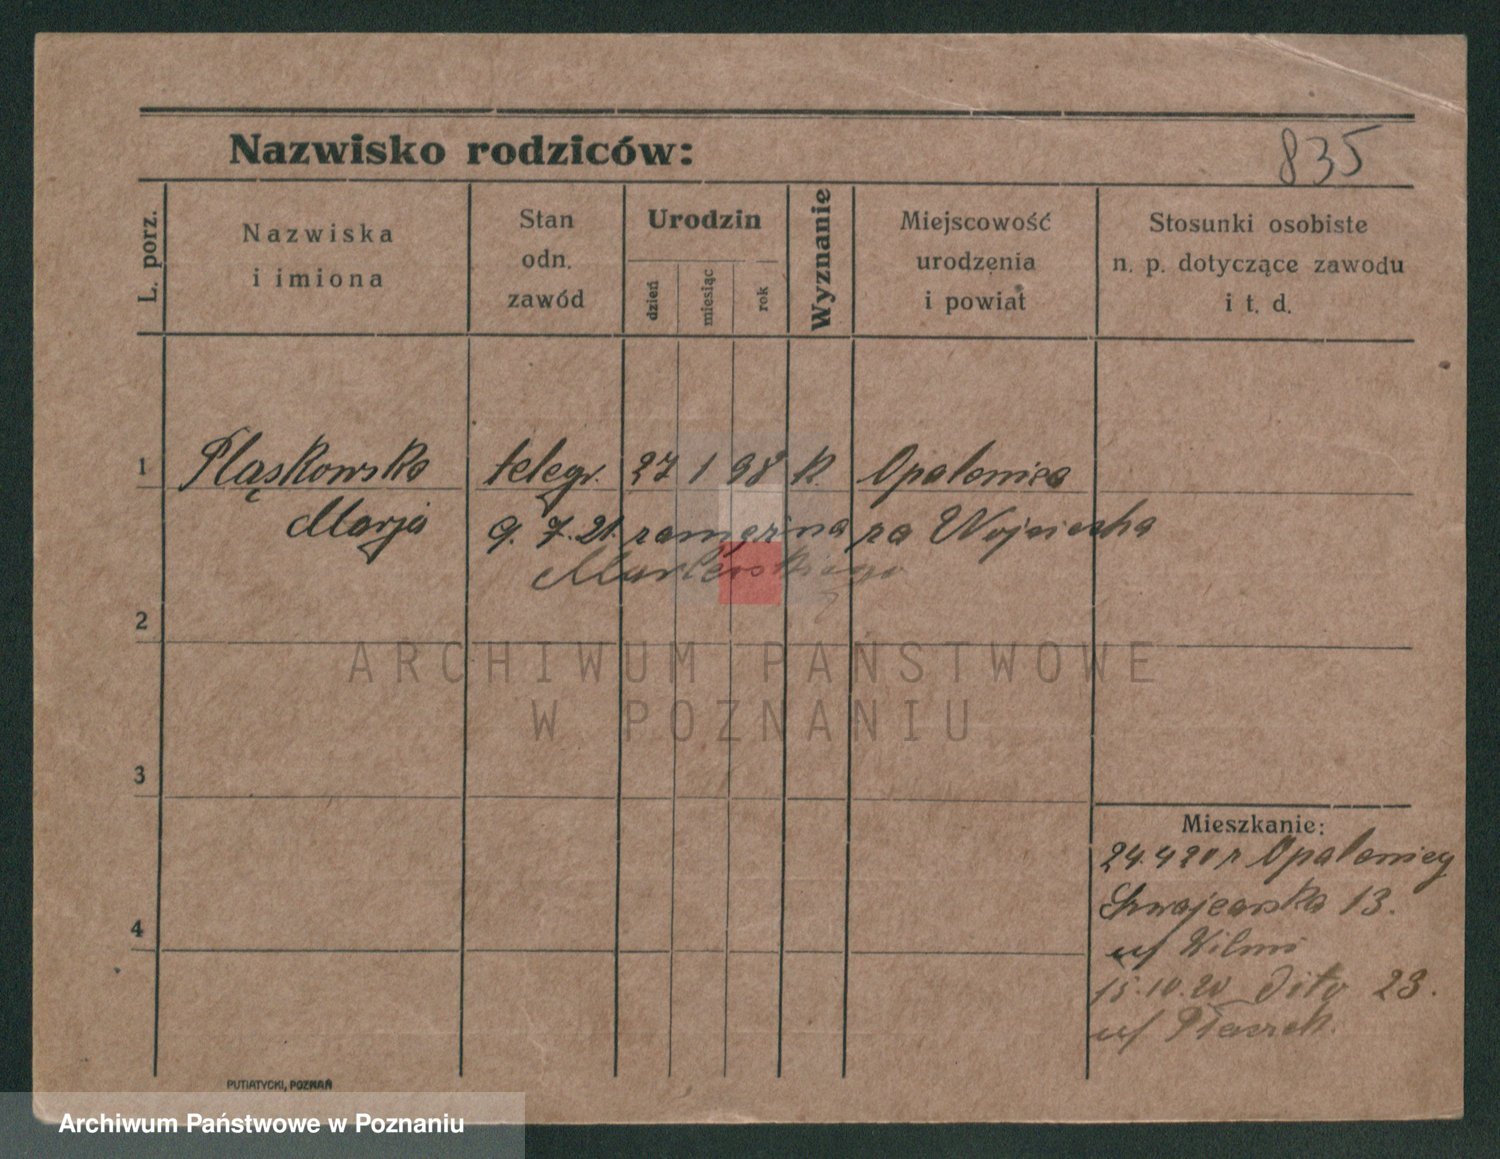 835
Nazwisko rodziców:
L. porz.
Nazwiska
i imiona
Stan
odn.
zawód
Urodzin
dzień
miesiąc
rok
Wyznanie
Miejscowość
urodzenia
i powiat
Stosunki osobiste
n. p. dotyczące zawodu
i t. d.
1 Pląskowska telegr. 27 1 98 k. Opalenica
Marja 9. 7. 21. zamężna za Wojciecha
2
ARCHIWUM PAŃSTWOWE
W POZNANIU
3
Mieszkanie:
24.4 20 z Opalenicy
Szwajcarska 13.
4
u/
15.10.20 Dito 23.
u/
PUTIATYCKI, POZNAŃ
Archiwum Państwowe w Poznaniu